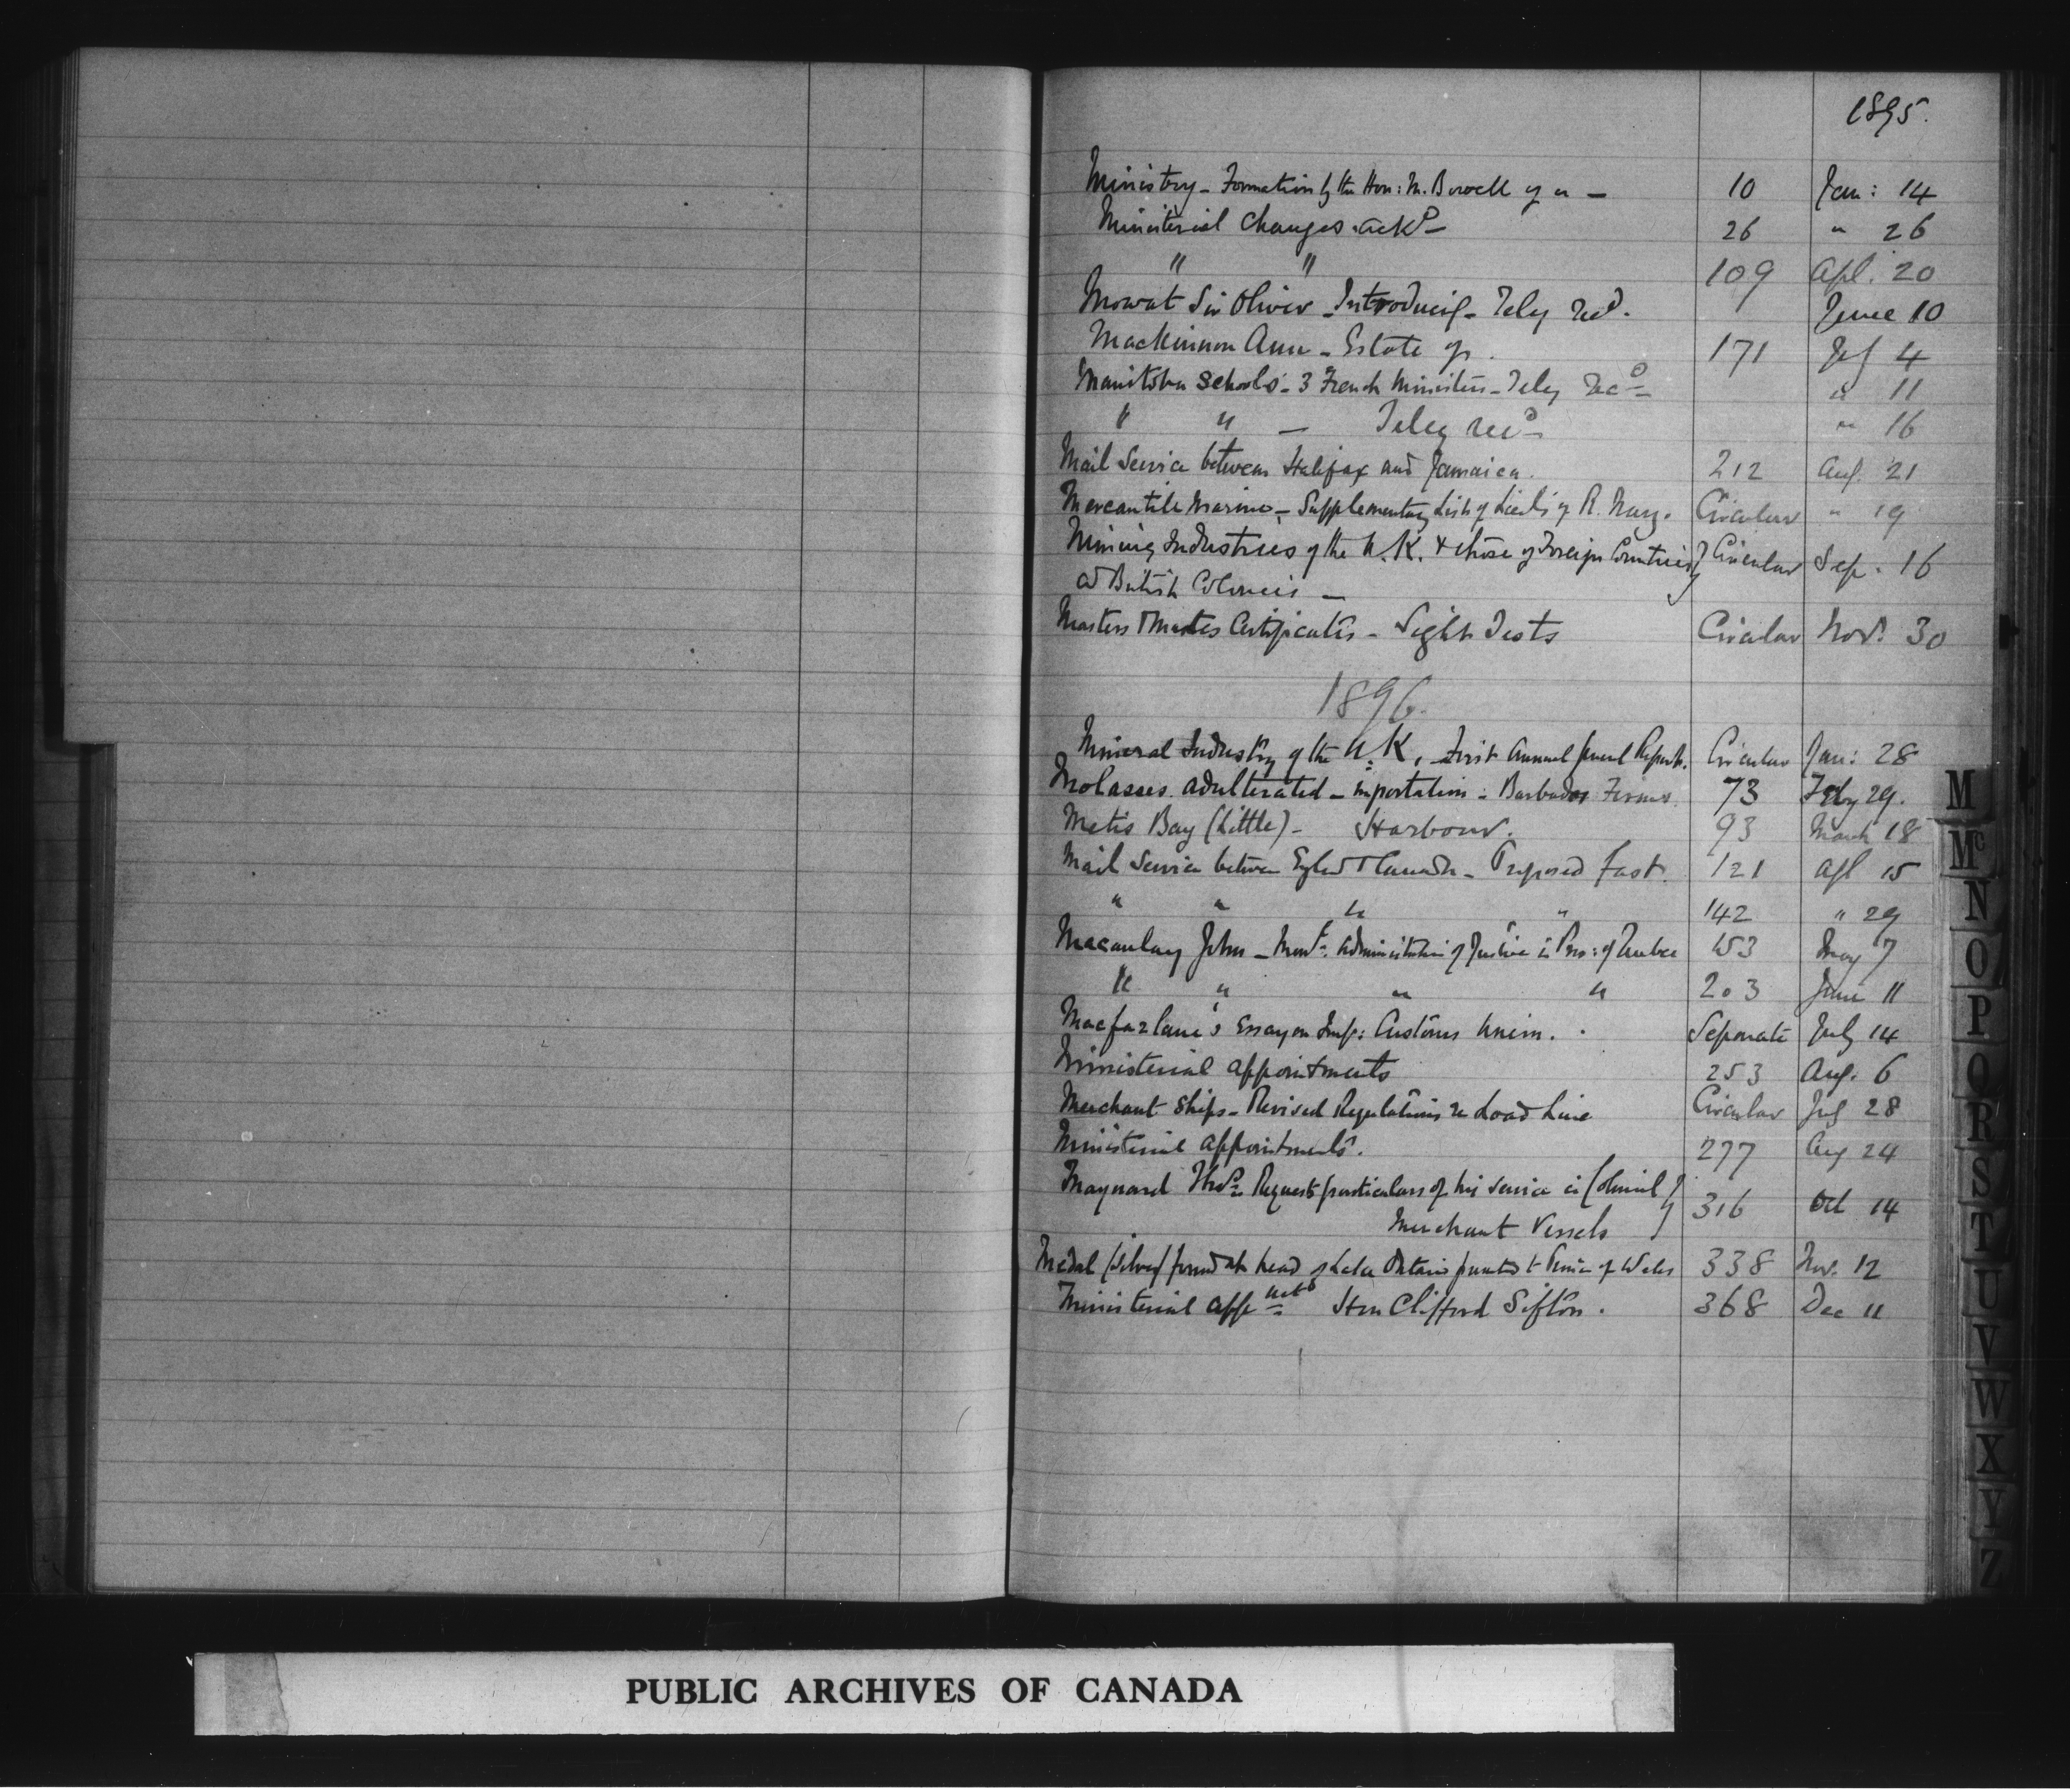 1895.
Ministry - Formation by the Hon: M. Bowell of a - 10 Jan: 14
Ministerial Changes ackd - 26 " 26
" " 109 Apl. 20
Mowat Sir Oliver - Introducing - Teleg recd. June 10
Mackinnon Ann - Estate of. 171 July 4
Manitoba Schools - 3 French Ministers - Teleg recd - " 11
" " - Teleg recd - " 16
Mail Service between Halifax and Jamaica. 212 Aug. 21
Mercantile Marine, - Supplementary List of Lieuts of R. Navy. Circular " 19
Mining Industries of the U.K. & those of Foreign Countries } Circular Sep. 16
and British Colonies -
Masters & Mates Certificates - Sight Tests Circular Nov. 30
1896.
Mineral Industry of the U.K. - First Annual General Report. Circular Jan: 28
Molasses adulterated - importation - Barbados Firms 73 Feby 29.
Metis Bay (Little) - Harbour. 93 March 18
Mail Service between Engld & Canada - Proposed fast. 121 Apl 15
" " " " 142 " 29
Macaulay John - Administration of Justice in Prov: of Quebec 153 May 7
" " " " 203 June 11
Macfarlane's Essay on Imp: Customs Union. Separate July 14
Ministerial appointments 253 Aug. 6
Merchant Ships - Revised Regulations re Load Line Circular July 28
Ministerial appointments. 277 Aug 24
Maynard Requests particulars of his service in Colonial } 316 Oct 14
Merchant Vessels
Medal (silver) found at head of Lake Ontario presented to Prince of Wales 338 Nov. 12
Ministerial appnts Hon Clifford Sifton. 368 Dec 11
M
Mc
N
O
P
Q
R
S
T
U
V
W
X
Y
Z
PUBLIC ARCHIVES OF CANADA